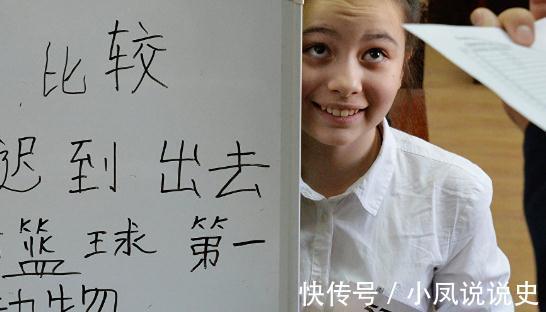 比较
迟到 出去
篮球 第一
动物
快传号 / 小凤说说史